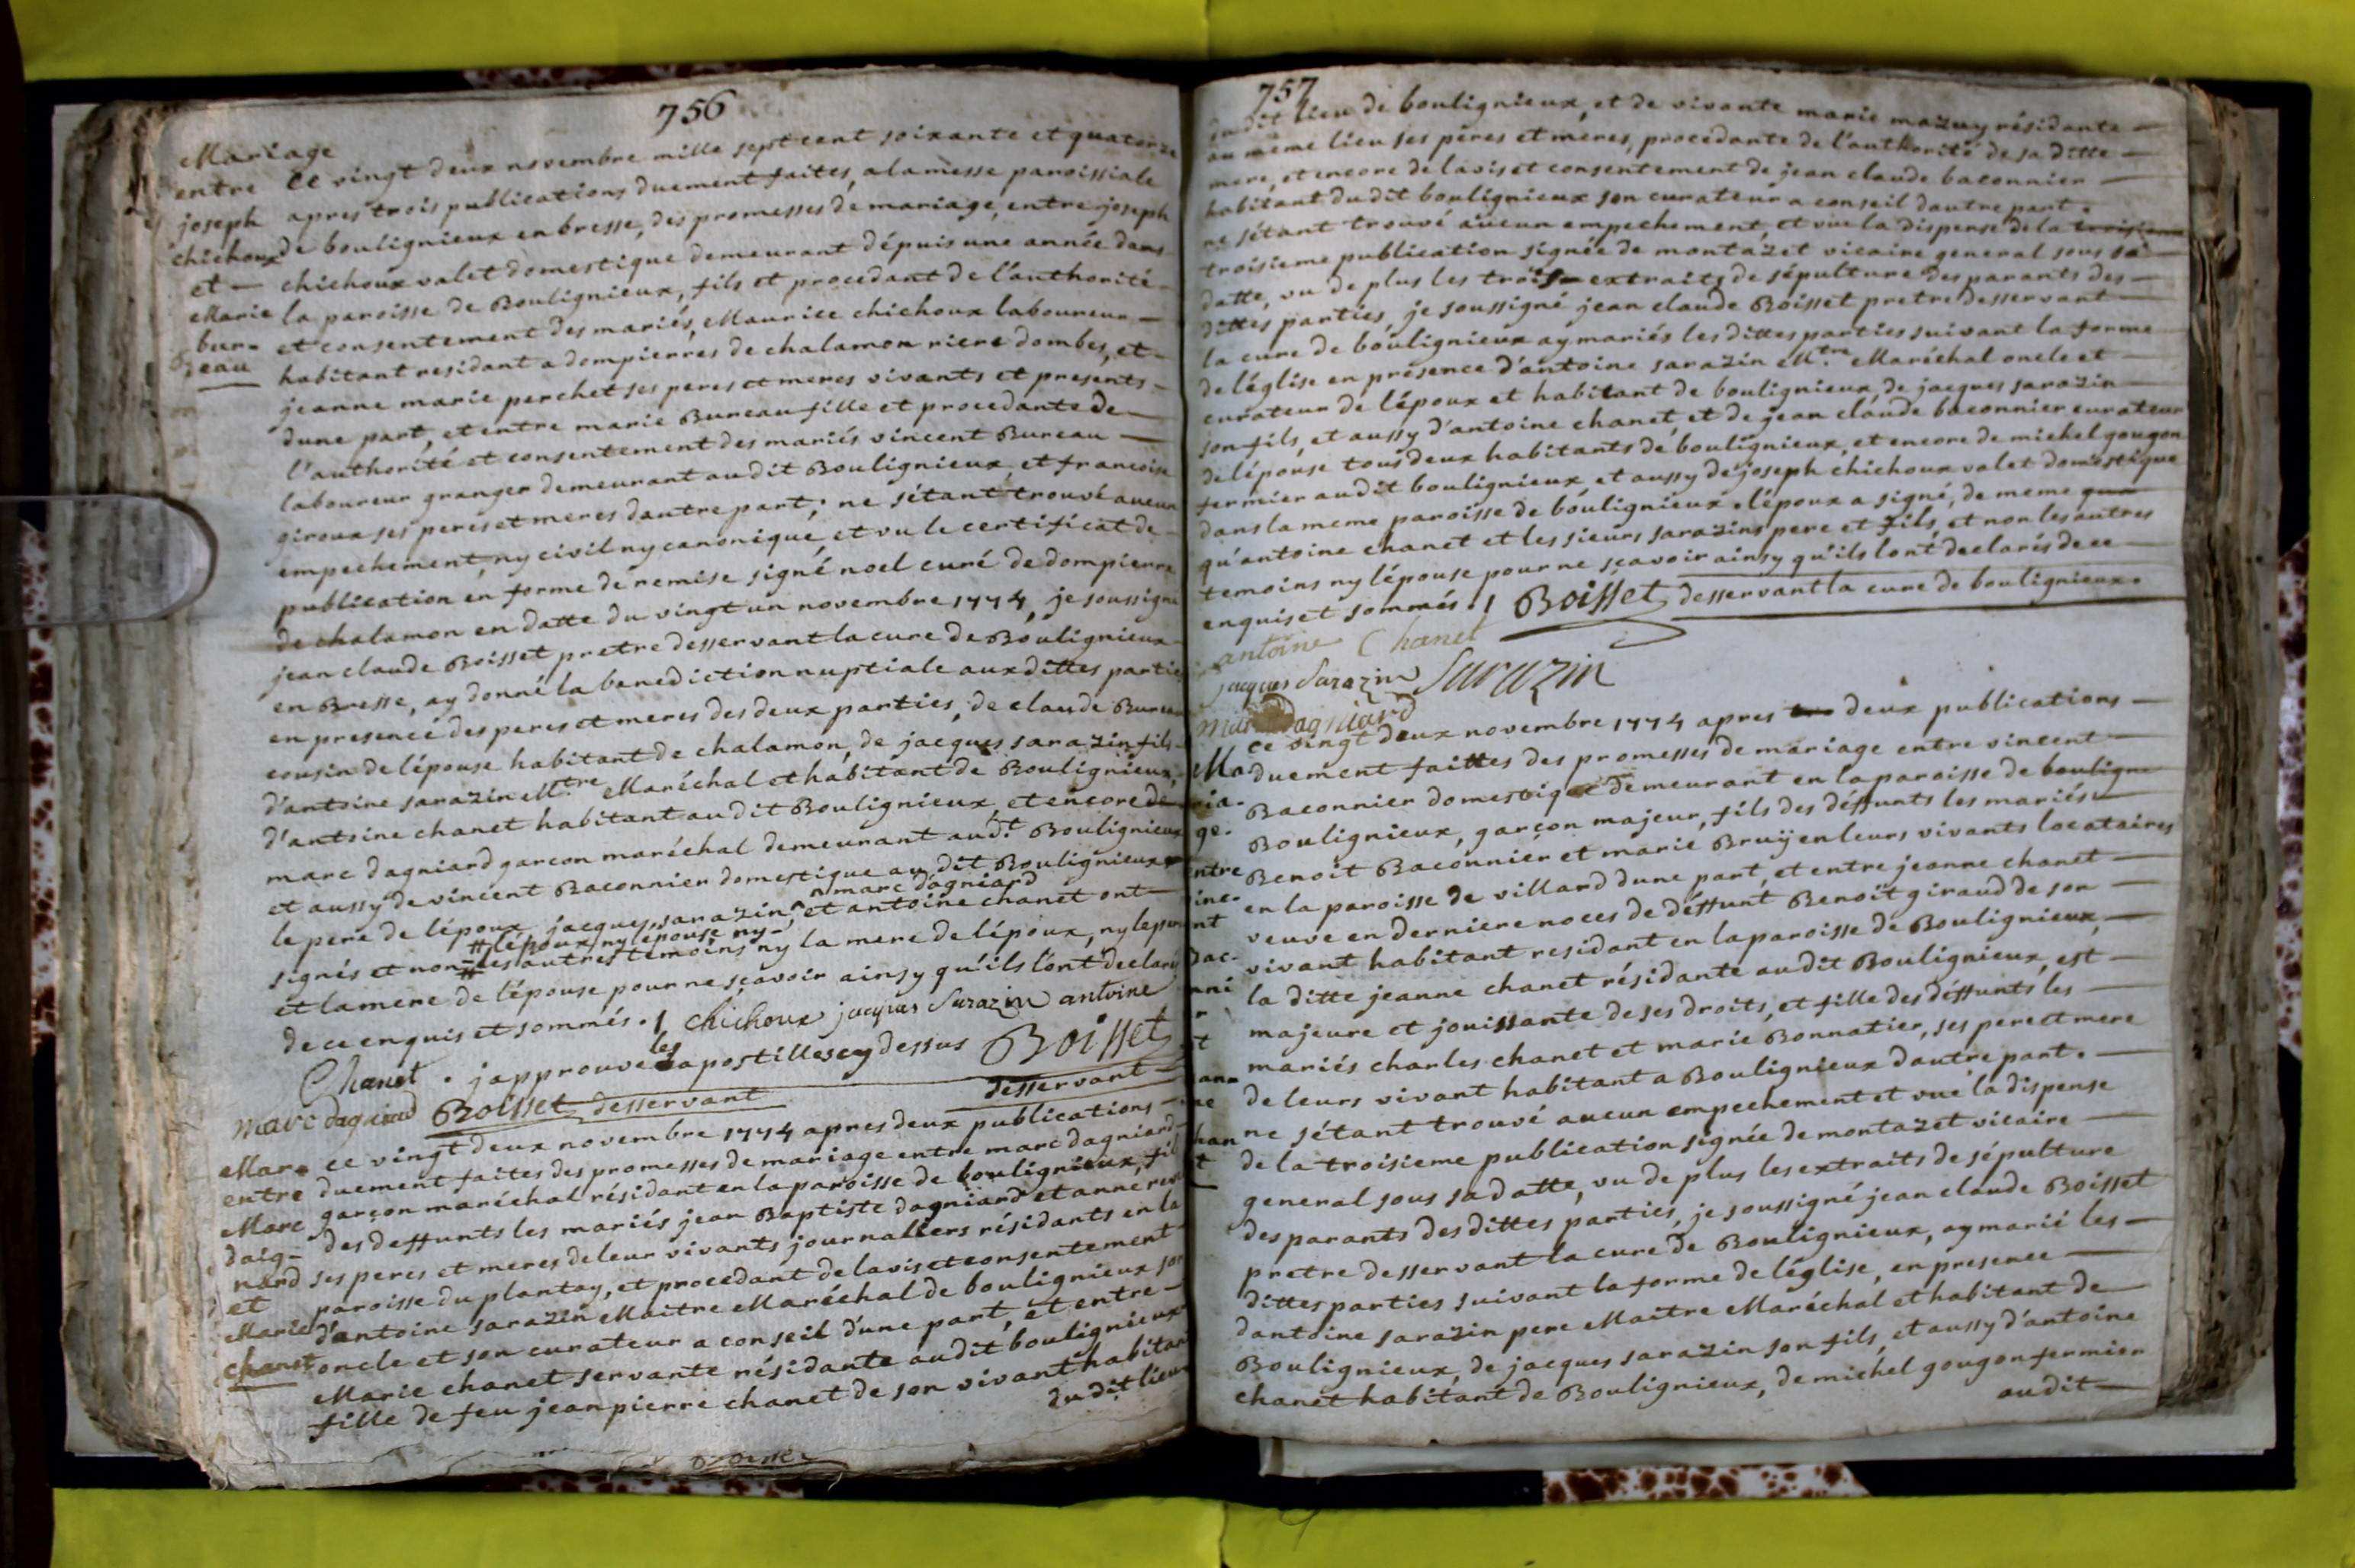 756
Mariage
entre
joseph
chichoux
et —
Marie
bur=
eau
Ce vingt deux novembre mille sept cent soixante et quatorze
apres trois publications duement faites, a la messe paroissiale
de boulignieux en bresse, des promesses de mariage, entre joseph
chichoux valet domestique demeurant dépuis une année dans
la paroisse de Boulignieux, fils et procedant de l'authorité
et consentement des mariés, Maurice chichoux laboureur —
habitant residant a dompierres de chalamon riere dombes, et —
jeanne marie perchet ses peres et meres vivants et presents —
dune part, et entre marie Bureau fille et procedante de —
l'authorité et consentement des mariés vincent Bureau —
laboureur granger demeurant au dit Boulignieux et francoise
giroux ses peres et meres dautre part; ne s'étant trouvé aucun
empechement, ny civil ny canonique, et vu le certificat de —
publication en forme de remise signé noel curé de dompierre
de chalamon en datte du vingt un novembre 1774, je soussigné
jean claude Boisset pretre desservant la cure de Boulignieux
en Bresse, ay donné la benediction nuptiale aux dittes partie
en presence des peres et meres des deux parties, de claude Bureau
cousin de l'épouse habitant de chalamon, de jacques sarazin fils
d'antoine sarazin M.tre Maréchal et habitant de Boulignieux,
d'antoine chanet habitant au dit Boulignieux et encore de
marc dagniard garcon maréchal demeurant au d.t Boulignieux
et aussy de vincent Baconnier domestique au dit Boulignieux
^ marc dagniard
le pere de l'époux, jacques sarazin, ^ et antoine chanet ont —
# l'époux, ny l'épouse ny —
signés et non # les autres temoins ny la mere de l'époux, ny le pere
et la mere de l'épouse pour ne sçavoir ainsy qu'ils l'ont declaré
de ce enquis et sommés. / chichoux jacques Sarazin antoine
Chanet . japprouve les apostilles cy dessus Boisset
desservant —
marc dagniard Boisset desservant
Mar=
entre
Marc
daig=
nard
et
Marie
chanet
ce vingt deux novembre 1774 apres deux publications —
duement faites des promesses de mariage entre marc dagniard
garçon maréchal résidant en la paroisse de boulignieux, fil
des deffunts les mariés jean Baptiste dagniard et anne
ses peres et meres de leur vivants journalliers résidants en la
paroisse du plantay, et procedant de lavis et consentement
d'antoine sarazin Maitre Maréchal de boulignieux son
oncle et son curateur a conseil d'une part, et entre —
Marie chanet servante résidante au dit boulignieux
fille de feu jean pierre chanet de son vivant habitant
du dit lieu
757
du dit lieu de boulignieux, et de vivante marie mazuy résidante —
au même lieu ses péres et meres, procedante de l'authorité de sa ditte —
mere, et encore de lavis et consentement de jean claude baconnier —
habitant du dit boulignieux son curateur a conseil dautre part.
ne s'étant trouvé aucun empechement, et vue la dispense de la troisieme
troisieme publication signée de montazet vicaire general sous sa —
datte, vu de plus les trois extraits de sépulture des parants des —
dittes parties, je soussigné jean claude Boisset pretre desservant —
la cure de boulignieux ay mariés les dittes parties suivant la forme
de l'église en présence d'antoine sarazin M.tre Maréchal oncle et —
curateur de l'époux et habitant de boulignieux, de jacques sarazin —
son fils, et aussy d'antoine chanet, et de jean claude baconnier curateur
de l'épouse tous deux habitants de boulignieux, et encore de michel gougon
fermier au dit boulignieux, et aussy de joseph chichoux valet domestique
dans la meme paroisse de boulignieux. l'époux a signé, de meme que
qu'antoine chanet et les sieurs sarazins pere et fils, et non les autres
temoins ny l'épouse pour ne sçavoir ainsy qu'ils l'ont declarés de ce —
enquis et sommés. / Boisset desservant la cure de boulignieux.
antoine Chanet
jacques Sarazin Sarazin
marc dagniard
Ma=
ria=
ge.
entre
vinc=
ent
bac=
onni
er
et
jean=
ne
chan
et
ce vingt deux novembre 1774 apres deux publications —
duement faittes des promesses de mariage entre vincent —
Baconnier domestique demeurant en la paroisse de bouligne
Boulignieux, garçon majeur, fils des déffunts les mariés —
Benoit Baconnier et marie Bruÿ en leurs vivants locataires
en la paroisse de villard dune part, et entre jeanne chanet —
veuve en derniere noces de déffunt Benoit giraud de son —
vivant habitant residant en la paroisse de Boulignieux, —
la ditte jeanne chanet résidante au dit Boulignieux, est —
majeure et jouissante de ses droits, et fille des déffunts les —
mariés charles chanet et marie Bonnatier, ses pere et mere
de leurs vivant habitant a Boulignieux dautre part. —
ne s'étant trouvé aucun empechement et vue la dispense
de la troisieme publication signée de montazet vicaire —
general sous sa datte, vu de plus les extraits de sépulture
des parants des dittes parties, je soussigné jean claude Boisset
pretre desservant la cure de Boulignieux, ay marié les —
dittes parties suivant la forme de l'église, en presence —
dantoine sarazin pere Maitre Maréchal et habitant de —
Boulignieux, de jacques sarazin son fils, et aussy d'antoine
chanet habitant de Boulignieux, de michel gougon fermier
au dit —